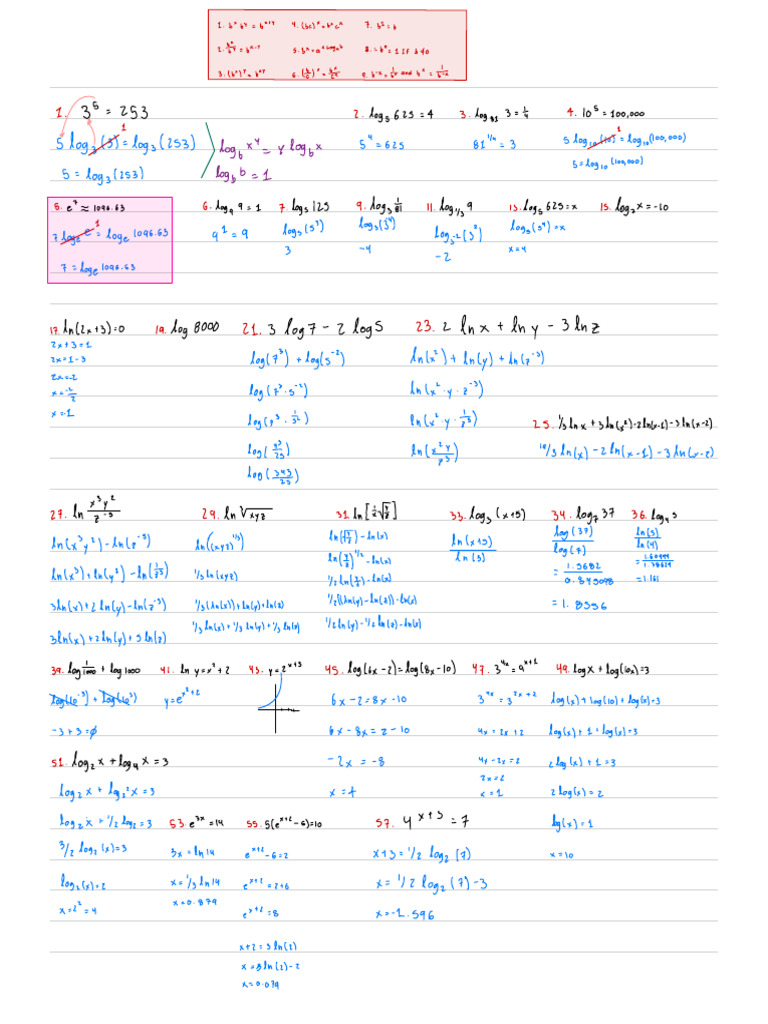 1. bˣ bʸ = bˣ⁺ʸ 4. (bc)ˣ = bˣcˣ 7. b¹ = b
3. (bˣ)ʸ = bˣʸ
1. 3⁵ = 253
5 log₃(3) = log₃(253)
1
5 = log₃(253)
log_b b = 1
2. log₅ 625 = 4
5⁴ = 625
3. log₈₁ 3 = 1/4
81^(1/4) = 3
4. 10⁵ = 100,000
5 log₁₀(10) = log₁₀(100,000)
1
5 = log₁₀(100,000)
5. e⁷ ≈ 1096.63
7 logₑ e = logₑ 1096.63
1
7 = logₑ 1096.63
6. log₉ 9 = 1
9¹ = 9
7 log₅ 125
log₅(5³)
3
9. log₃ 1/81
-4
11. log₁/₃ 9
-2
13. log₅ 625 = x
log₅(5⁴) = x
x = 4
15. log₂ x = -10
17. ln(2x+3) = 0
2x + 3 = 1
2x = 1 - 3
2x = -2
x = -2/2
x = 1
19. log 8000
21. 3 log 7 - 2 log 5
log(7³) + log(5⁻²)
log(7³ · 5⁻²)
log(343/25)
23. 2 ln x + ln y - 3 ln z
ln(x²) + ln(y) + ln(z⁻³)
ln(x² · y · z⁻³)
ln(x² · y · 1/z³)
ln(x²y/z³)
25. 1/3 ln x + 3 ln(x²) - 2 ln(x-1) - 3 ln(x-2)
19/3 ln(x) - 2 ln(x-1) - 3 ln(x-2)
27. ln x³y²/z⁻⁵
ln(x³y²) - ln(z⁻⁵)
ln(x³) + ln(y²) - ln(1/z⁵)
3 ln(x) + 2 ln(y) - ln(z⁻⁵)
3 ln(x) + 2 ln(y) + 5 ln(z)
29. ln √xyz
ln((xyz)^(1/3))
1/3 ln(xyz)
1/3 (ln(x)) + ln(y) + ln(z)
1/3 ln(x) + 1/3 ln(y) + 1/3 ln(z)
31. ln[1/x √(y/z)]
1/2 ln(y/z) - ln(x)
1/2 ((ln(y) - ln(z)) - ln(x)
1/2 ln(y) - 1/2 ln(z) - ln(x)
33. log₃(x+5)
ln(x+5)/ln(3)
34. log₇ 37
log(37)/log(7)
= 1.5682/0.845098
= 1.8556
36. log₄ 5
ln(5)/ln(4)
= 1.161
39. log 1/1000 + log 1000
log(10⁻³) + log(10³)
-3 + 3 = 0
41. ln y = x² + 2
y = e^(x²+2)
43. y = 2^(x+3)
45. log(6x - 2) = log(8x - 10)
6x - 2 = 8x - 10
6x - 8x = 2 - 10
-2x = -8
x = 4
47. 3^(4x) = 9^(x+1)
3^(4x) = 3^(2x+2)
4x = 2x + 2
4x - 2x = 2
2x = 2
x = 1
49. log x + log(10x) = 3
log(x) + log(10) + log(x) = 3
log(x) + 1 + log(x) = 3
2 log(x) + 1 = 3
2 log(x) = 2
log(x) = 1
x = 10
51. log₂ x + log₄ x = 3
log₂ x + log₂² x = 3
log₂ x + 1/2 log₂ = 3
3/2 log₂(x) = 3
log₂(x) = 2
x = 2² = 4
53. e^(3x) = 14
3x = ln 14
x = 1/3 ln 14
x = 0.879
55. 5(e^(x+2) - 6) = 10
e^(x+2) - 6 = 2
e^(x+2) = 2 + 6
e^(x+2) = 8
x + 2 = 3 ln(2)
x = 3 ln(2) - 2
x = 0.079
57. 4^(x+3) = 7
x + 3 = 1/2 log₂(7)
x = 1/2 log₂(7) - 3
x = -1.596